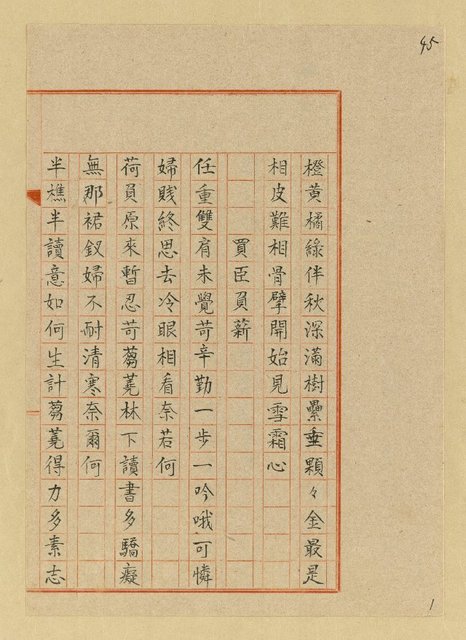 45
橙黃橘綠伴秋深滿樹纍垂顆々金最是
相皮難相骨擘開始見雪霜心
買臣負薪
任重雙肩未覺苛辛勤一步一吟哦可憐
婦賤終思去冷眼相看奈若何
荷負原來暫忍苛蒭蕘林下讀書多驕癡
無那裙釵婦不耐清寒奈爾何
半樵半讀意如何生計蒭蕘得力多素志
1